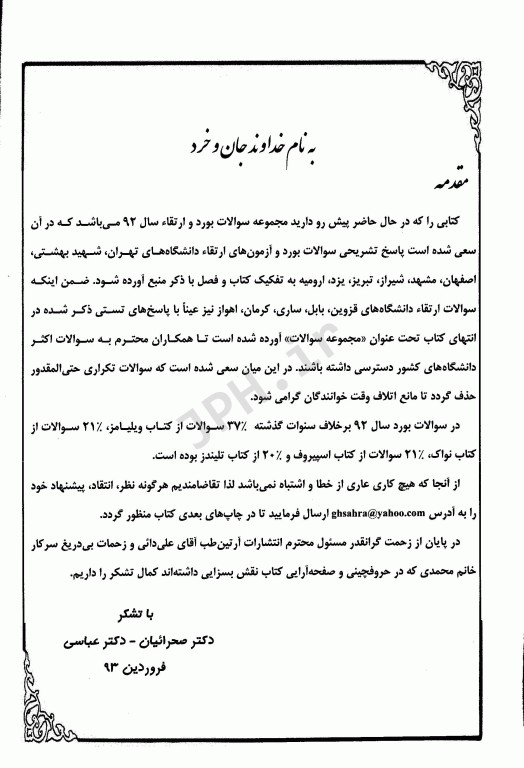 به نام خداوند جان و خرد
مقدمه
کتابی را که در حال حاضر پیش رو دارید مجموعه سوالات بورد و ارتقاء سال ۹۲ می‌باشد که در آن
سعی شده است پاسخ تشریحی سوالات بورد و آزمون‌های ارتقاء دانشگاه‌های تهران، شهید بهشتی،
اصفهان، مشهد، شیراز، تبریز، یزد، ارومیه به تفکیک کتاب و فصل با ذکر منبع آورده شود. ضمن اینکه
سوالات ارتقاء دانشگاه‌های قزوین، بابل، ساری، کرمان، اهواز نیز عیناً با پاسخ‌های تستی ذکر شده در
انتهای کتاب تحت عنوان «مجموعه سوالات» آورده شده است تا همکاران محترم به سوالات اکثر
دانشگاه‌های کشور دسترسی داشته باشند. در این میان سعی شده است که سوالات تکراری حتی‌المقدور
حذف گردد تا مانع اتلاف وقت خوانندگان گرامی شود.
در سوالات بورد سال ۹۲ برخلاف سنوات گذشته ۳۷٪ سوالات از کتاب ویلیامز، ۲۱٪ سوالات از
کتاب نواک، ۲۱٪ سوالات از کتاب اسپیروف و ۲۰٪ از کتاب تلیندز بوده است.
از آنجا که هیچ کاری عاری از خطا و اشتباه نمی‌باشد لذا تقاضامندیم هرگونه نظر، انتقاد، پیشنهاد خود
را به آدرس ghsahra@yahoo.com ارسال فرمایید تا در چاپ‌های بعدی کتاب منظور گردد.
در پایان از زحمت گرانقدر مسئول محترم انتشارات آرتین‌طب آقای علی‌دائی و زحمات بی‌دریغ سرکار
خانم محمدی که در حروفچینی و صفحه‌آرایی کتاب نقش بسزایی داشته‌اند کمال تشکر را داریم.
با تشکر
دکتر صحرائیان - دکتر عباسی
فروردین ۹۳
JPH.ir